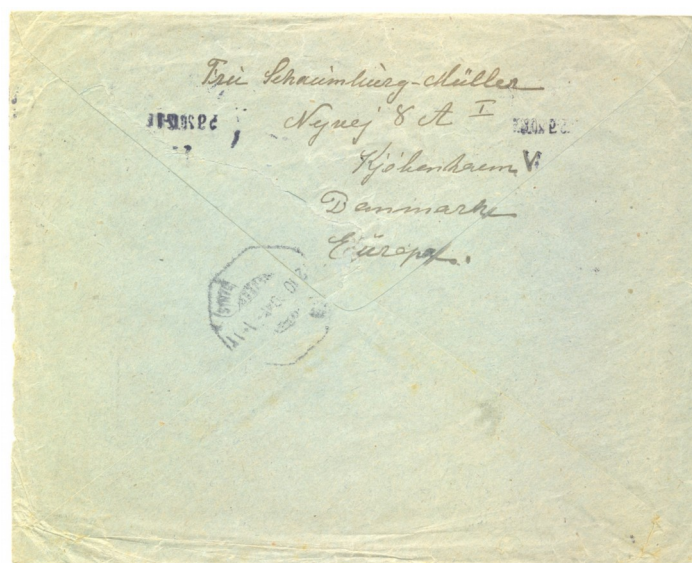 Fru Schaumburg-Müller
Nyvej 8 A I
Kjøbenhavn V.
Danmark
Europa.